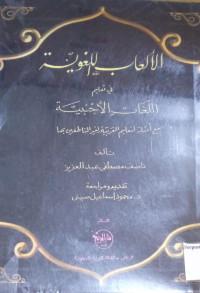 الألعاب اللغوية
في تعليم
اللغات الأجنبية
مع أمثلة لتعليم العربية لغير الناطقين بها
تأليف
ناصف مصطفى عبد العزيز
تقديم ومراجعة
د. محمود إسماعيل صيني